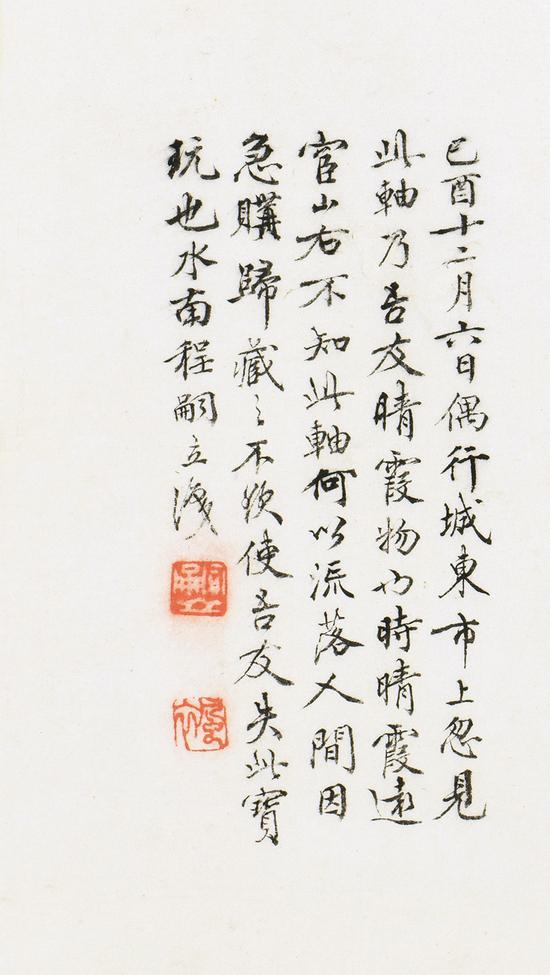 己酉十二月六日偶行城東市上忽見
此軸乃吾友晴霞物也時晴霞遠
宦山右不知此軸何以流落人間因
急購歸藏之不欲使吾友失此寶
玩也水南程嗣立識
嗣立
風衣